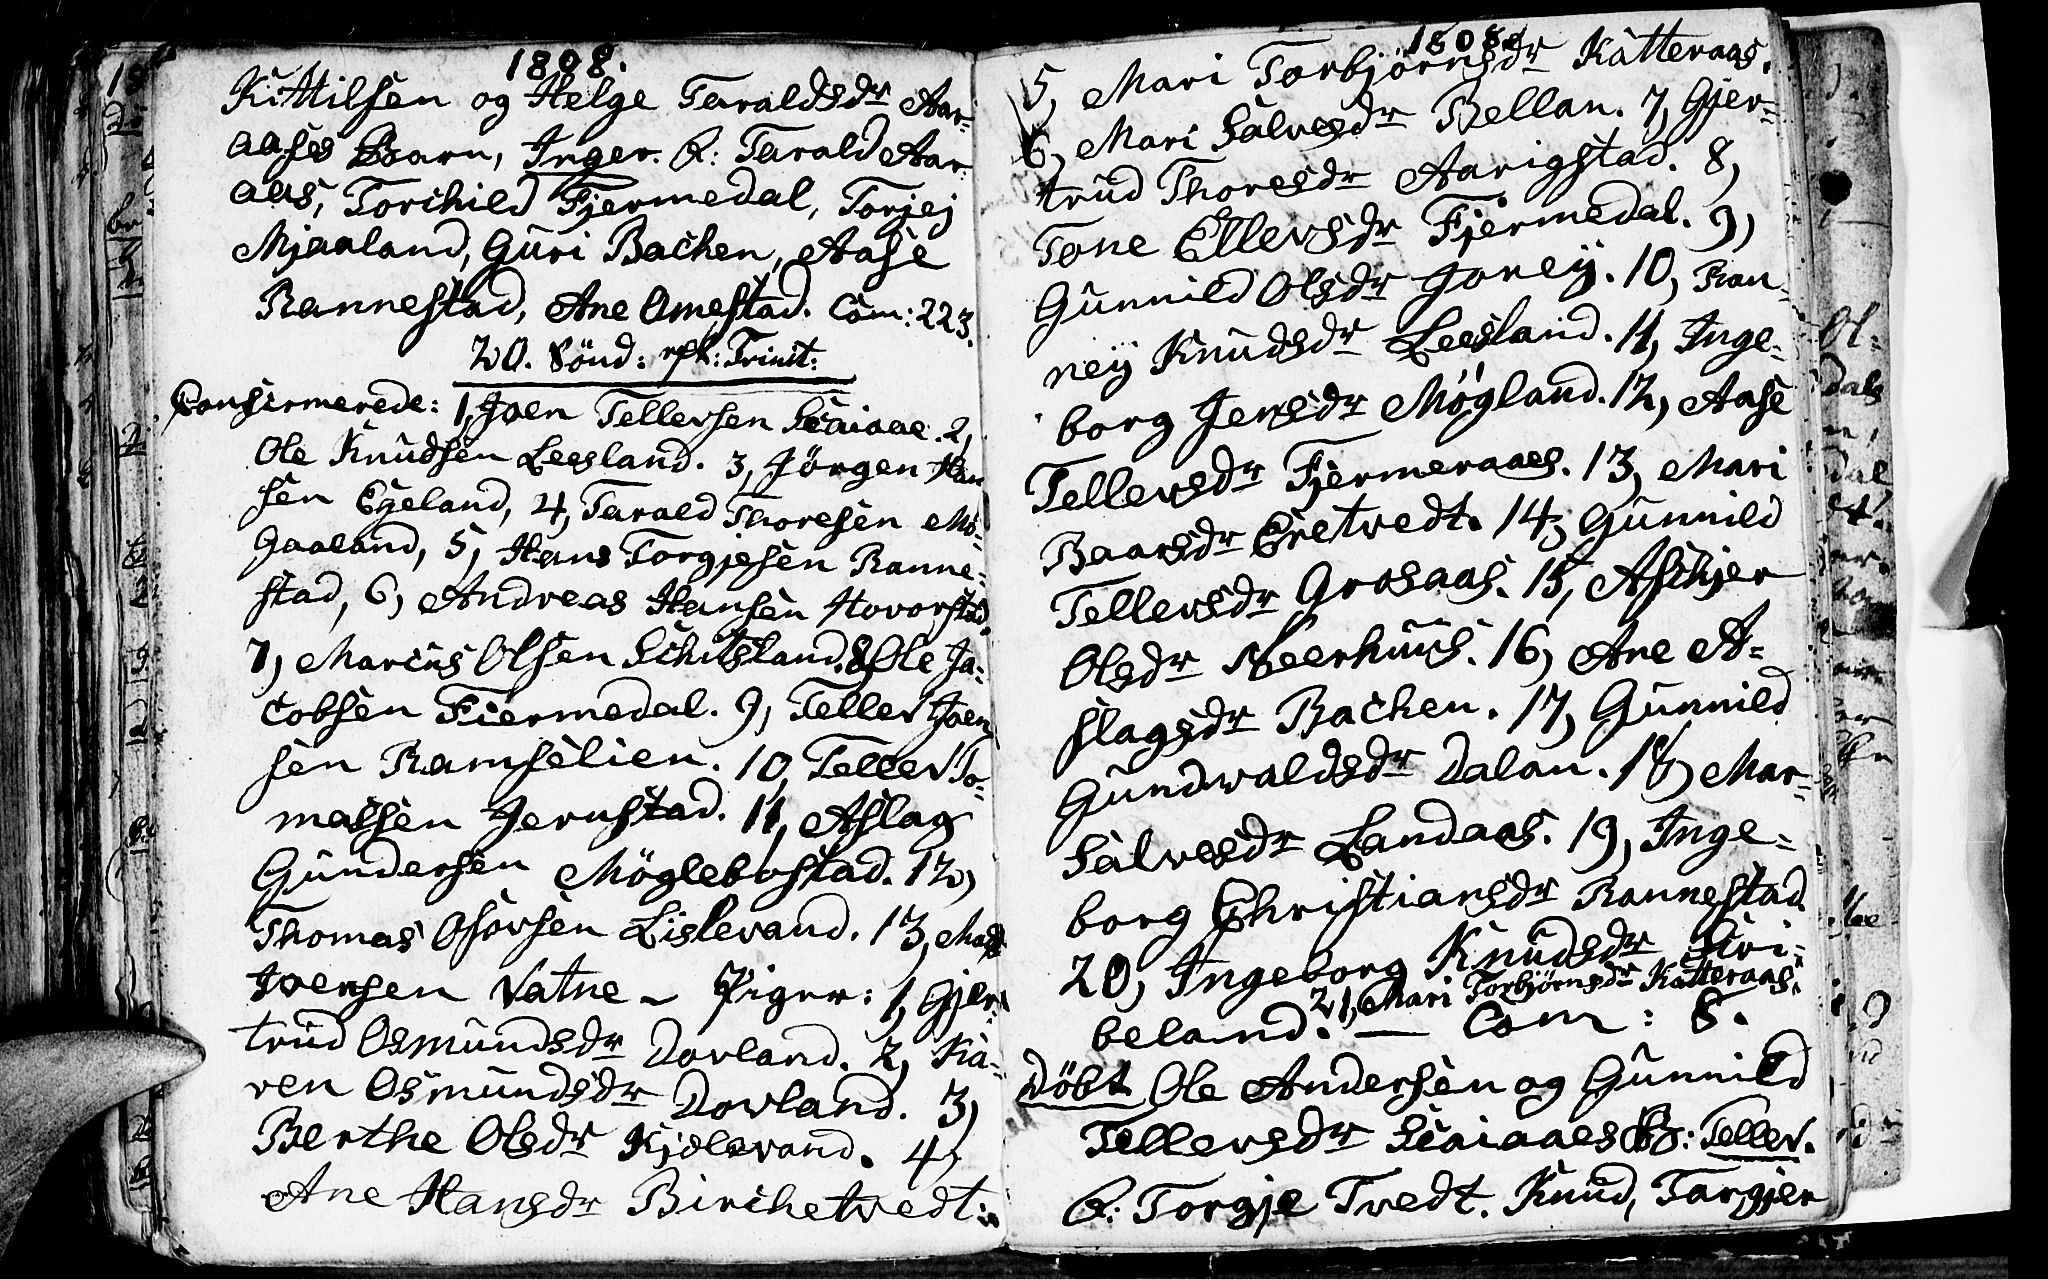 1808.
Kittilsen og Helge Taraldsdr Aar-
aases Barn, Inger. F: Tarald Aar-
aas, Torchild Fjermedal, Torjej
Mjaaland, Guri Bachen, Aase
Rannestad, Ane Omestad. Com: 223.
20. Sönd: eft: Trinit:
Confirmerede: 1, Joen Tellefsen Scaiaae. 2,
Ole Knudsen Leesland. 3, Jörgen Han
sen Egeland, 4, Tarald Thoresen Mö-
gaaland, 5, Hans Torgjesen Ranne-
stad, 6, Andreas Hansen Hovorstad.
7, Marcus Olsen Schitsland. 8, Ole Ja-
cobsen Fiermedal. 9, Tellef Joen
sen Ramselien. 10, Tellef To-
massen Jernstad. 11, Aslag
Gundersen Möglebostad. 12,
Thomas Osorsen Lislevand. 13, Mads
Iversen Vatne – Piger: 1, Gjer-
trud Osmundsdr Dovland. 2, Ka-
ren Osmundsdr Dovland. 3,
Berthe Olsdr Kjølevand. 4,
Ane Hansdr Birchetvedt.
1808.
5, Mari Torbjörnsdr Katteraas.
6, Mari Salvesdr Bellan. 7, Gjer-
trud Thoresdr Aarigstad. 8,
Tone Ellevsdr Fjermedal. 9,
Gunnild Olsdr Jorej. 10, Ran-
nej Knudsdr Leesland. 11, Inge-
borg Jensdr Mögland. 12, Aase
Tellevsdr Fjermeraaes. 13, Mari
Baarsdr Eretvedt. 14, Gunnild
Tellevsdr Grosaas. 15, Aschjer
Olsdr Neerhuus. 16, Ane A-
slagsdr Bachen. 17, Gunnild
Gundwaldsdr Dalan. 18, Mar-
Salvesdr Landaas. 19, Inge-
borg Christiansdr Rannestad
20, Ingeborg Knudsdr Skri-
21, Mari Torbjörnsdr Katteraas.
beland. — Com: 8.
Döbt Ole Andersen og Gunnild
Tellevsdr Scaiaaes B: Tellev.
F: Torgje Tvedt. Knud, Targjer